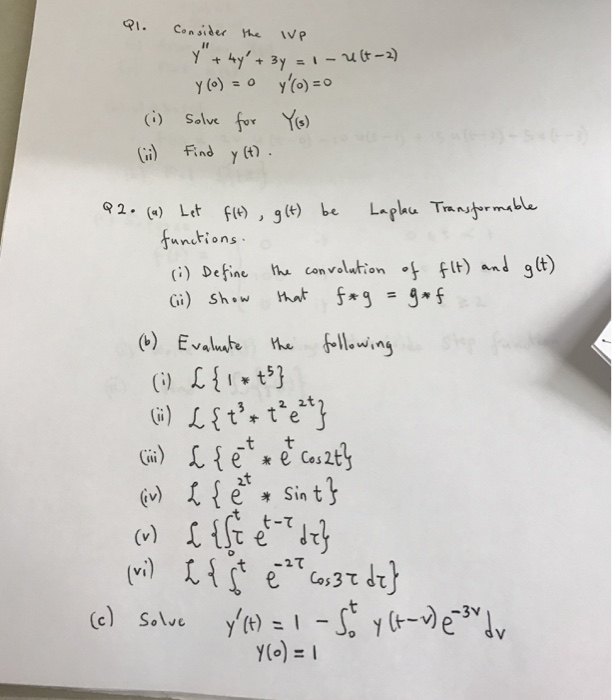 Q1. Consider the IVP
y'' + 4y' + 3y = 1 - u(t-2)
y(0) = 0 y'(0) = 0
(i) Solve for Y(s)
(ii) Find y(t).
Q2. (a) Let f(t), g(t) be Laplace Transformable
functions.
(i) Define the convolution of f(t) and g(t)
(ii) Show that f*g = g*f
(b) Evaluate the following
(i) ℒ{1 * t⁵}
(ii) ℒ{t³ * t² e^{2t}}
(iii) ℒ{e^{-t} * e^t cos2t}
(iv) ℒ{e^{2t} * sin t}
(v) ℒ{∫₀^t τ e^{t-τ} dτ}
(vi) ℒ{∫₀^t e^{-2τ} cos3τ dτ}
(c) Solve y'(t) = 1 - ∫₀^t y(t-v) e^{-3v} dv
y(0) = 1